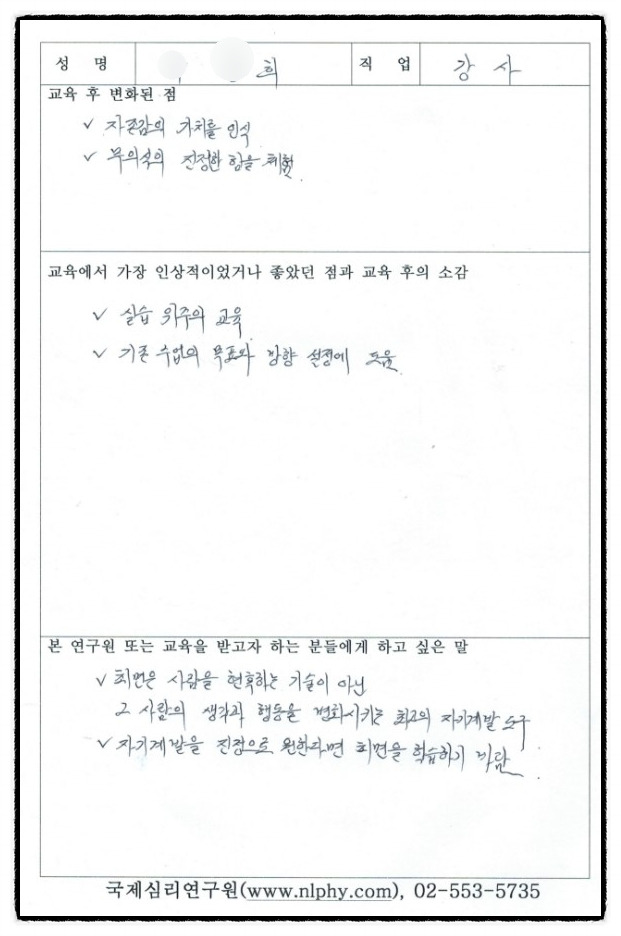 성 명 희 직 업 강 사
교육 후 변화된 점
✓ 자존감의 가치를 인식
✓ 무의식의 진정한 힘을 체험.
교육에서 가장 인상적이었거나 좋았던 점과 교육 후의 소감
✓ 실습 위주의 교육
✓ 기존 수업의 목표와 방향 설정에 도움.
본 연구원 또는 교육을 받고자 하는 분들에게 하고 싶은 말
✓ 최면은 사람을 현혹하는 기술이 아닌
그 사람의 생각과 행동을 변화시키는 최고의 자기계발 도구
✓ 자기계발을 진정으로 원한다면 최면을 학습하기 바람.
국제심리연구원(www.nlphy.com), 02-553-5735